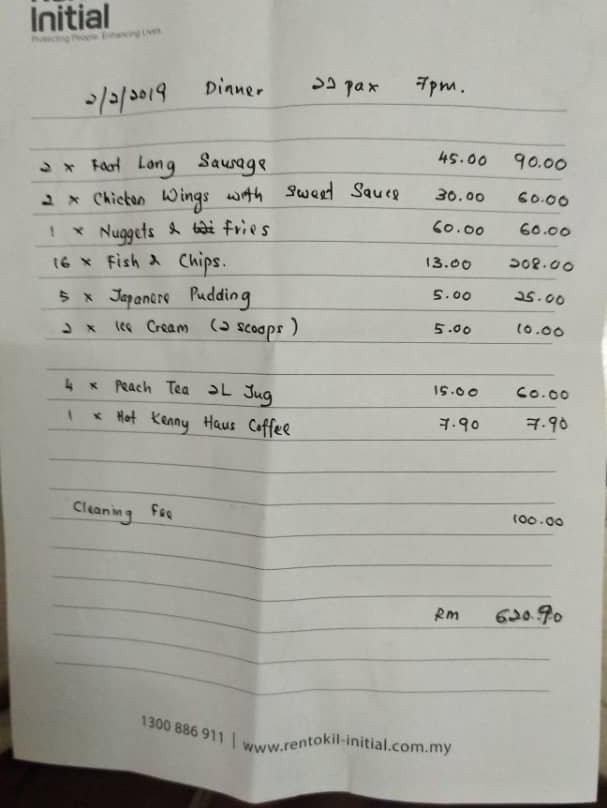 Initial
Protecting People. Enhancing Lives.
2/2/2019 Dinner 22 pax 7pm.
2 x Foot Long Sausage 45.00 90.00
2 x Chicken Wings with Sweet Sauce 30.00 60.00
1 x Nuggets & Fries 60.00 60.00
16 x Fish & Chips. 13.00 208.00
5 x Japanese Pudding 5.00 25.00
2 x Ice Cream (2 scoops) 5.00 10.00
4 x Peach Tea 2L Jug 15.00 60.00
1 x Hot Kenny Haus Coffee 7.90 7.90
Cleaning Fee 100.00
RM 620.90
1300 886 911 | www.rentokil-initial.com.my